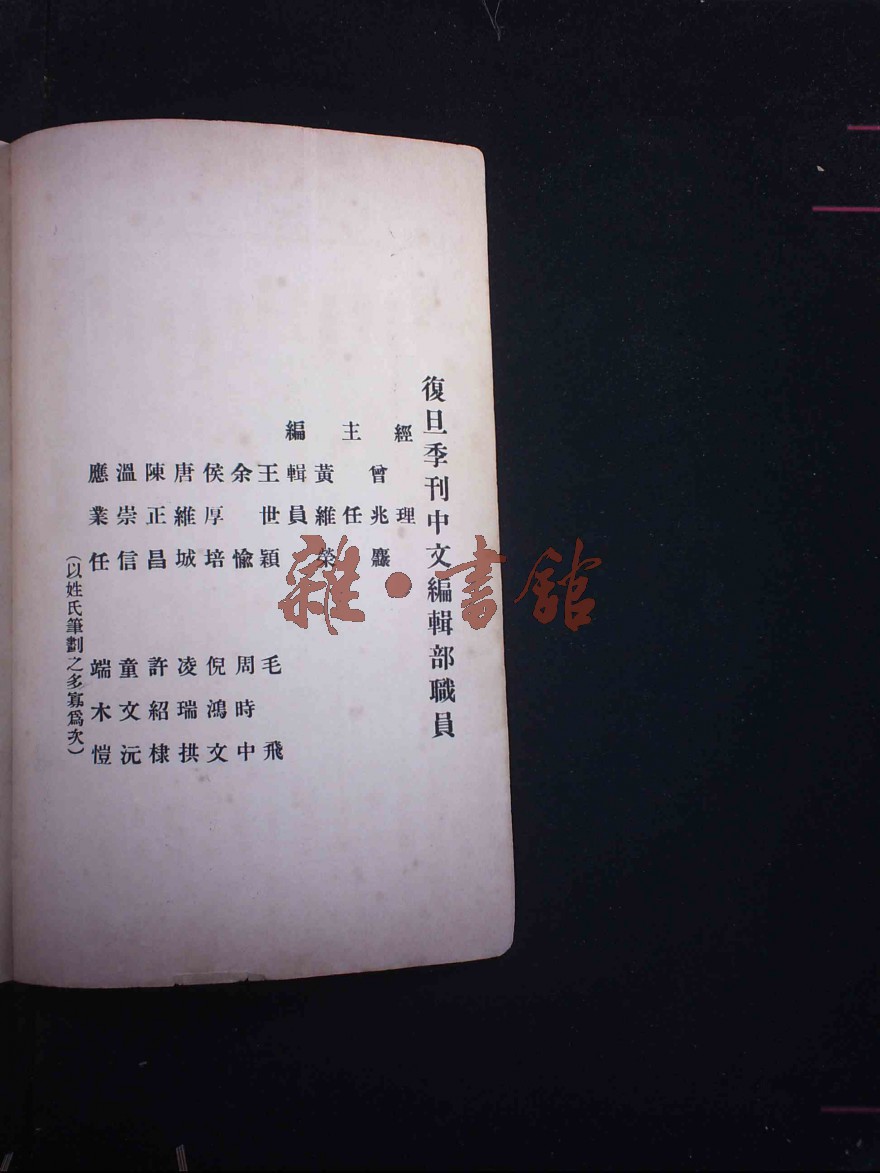 復旦季刊中文編輯部職員
經理
曾兆
主任
黃維榮
編輯員
王世穎 毛飛
余愉 周時中
侯厚培 倪鴻文
唐維城 凌瑞拱
陳正昌 許紹棣
溫崇信 童文沅
應業任 端木愷
（以姓氏筆劃之多寡爲次）
雜·書館